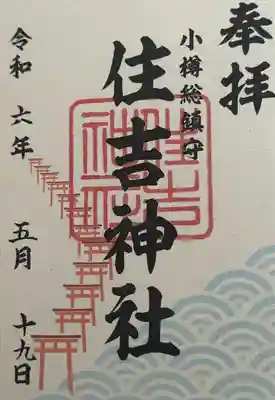 奉拝
小樽総鎮守
住吉神社
令和六年 五月 十九日